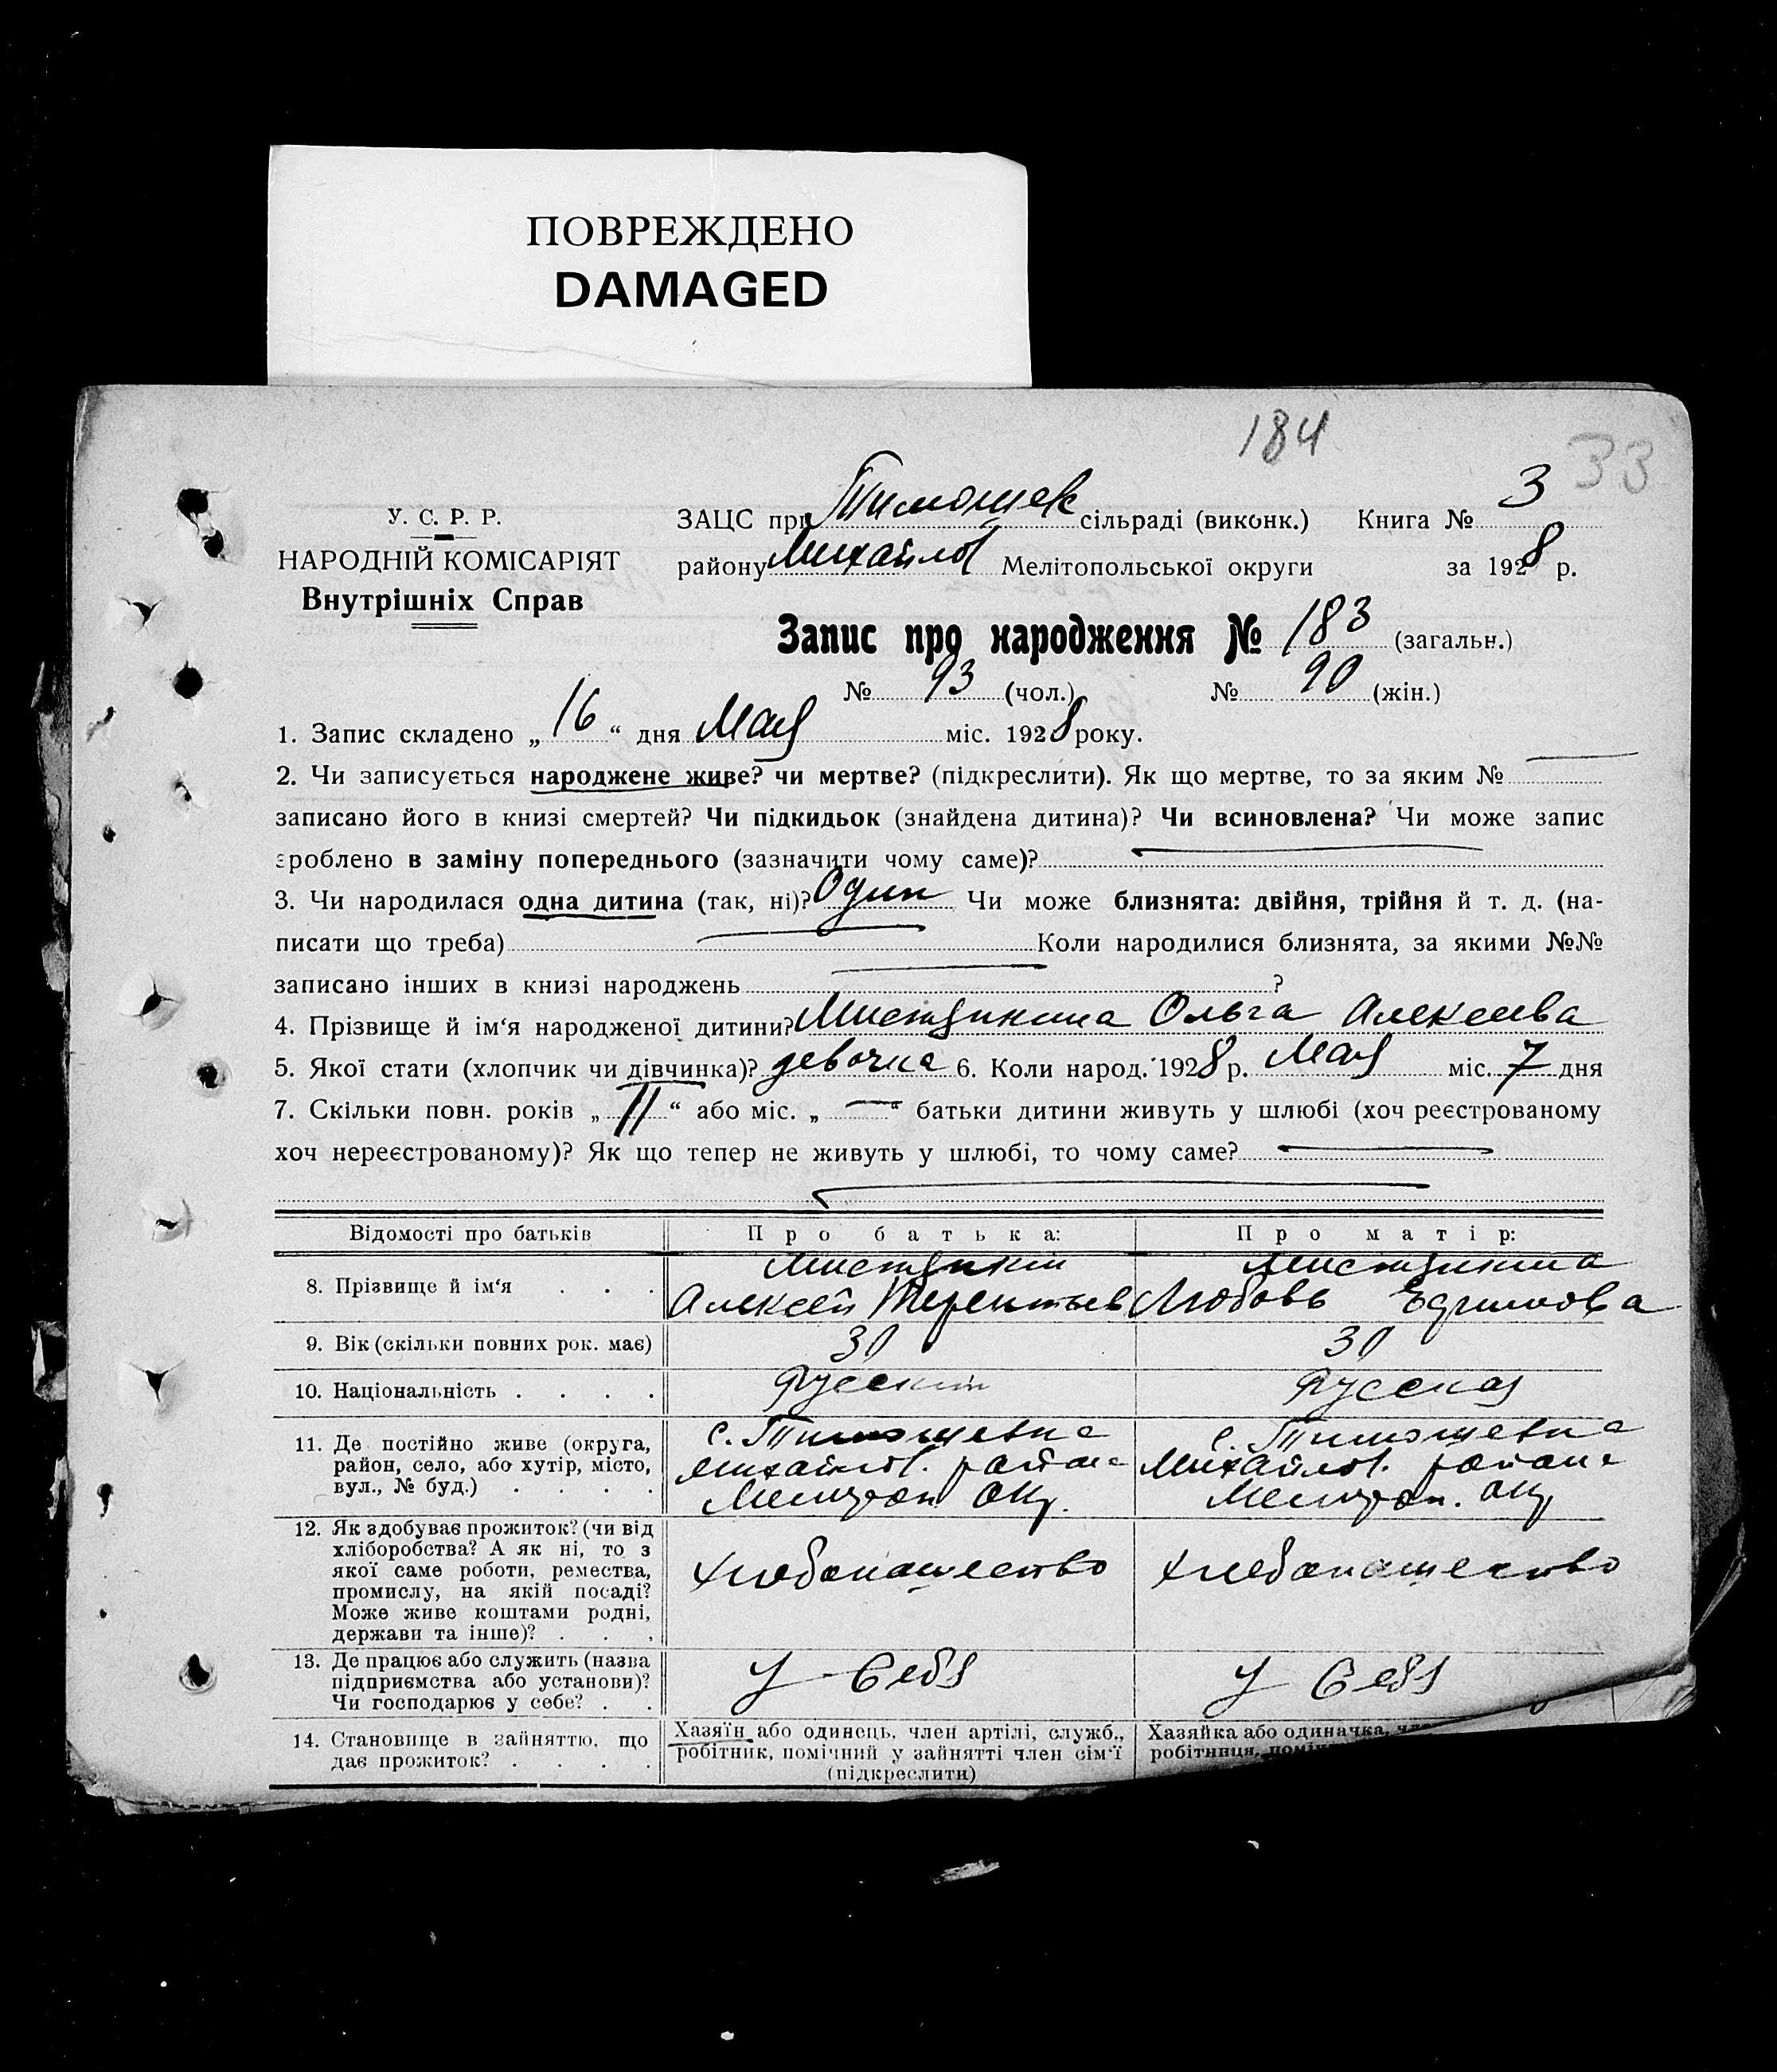 ПОВРЕЖДЕНО
DAMAGED
184
33
У. С. Р. Р.
НАРОДНІЙ КОМІСАРІЯТ
Внутрішніх Справ
ЗАЦС при Тимошек сільраді (виконк.) Книга № 3
району Михайлов Мелітопольської округи за 1928 р.
Запис про народження № 183 (загальн.)
№ 93 (чол.) № 90 (жін.)
1. Запис складено „ 16 “ дня Мая міс. 1928 року.
2. Чи записується народжене живе? чи мертве? (підкреслити). Як що мертве, то за яким №
записано його в книзі смертей? Чи підкидьок (знайдена дитина)? Чи всиновлена? Чи може запис
зроблено в заміну попереднього (зазначити чому саме)?
3. Чи народилася одна дитина (так, ні)? Один Чи може близнята: двійня, трійня й т. д. (на-
писати що треба) Коли народилися близнята, за якими №№
записано інших в книзі народжень ?
4. Прізвище й ім‘я народженої дитини? Ольга Алексеева
5. Якої стати (хлопчик чи дівчинка)? девочка 6. Коли народ. 1928 р. Мая міс. 7 дня
7. Скільки повн. років „ 11 “ або міс. „ — “ батьки дитини живуть у шлюбі (хоч реєстрованому
хоч нереєстрованому)? Як що тепер не живуть у шлюбі, то чому саме?
Відомості про батьків
Про батька:
Про матір:
8. Прізвище й ім‘я . . .
Алексей Терентьев
Любовь Ефимова
9. Вік (скільки повних рок. має)
30
30
10. Національність . . . .
Русский
Русская
11. Де постійно живе (округа,
район, село, або хутір, місто,
вул., № буд.) . . . .
с. Тимошевка
Михайлов. района
Мелитоп. Окр.
с. Тимошевка
Михайлов. района
Мелитоп. Окр
12. Як здобуває прожиток? (чи від
хліборобства? А як ні, то з
якої саме роботи, ремества,
промислу, на якій посаді?
Може живе коштами родні,
держави та інше)? . . .
Хлебопашество
Хлебопашество
13. Де працює або служить (назва
підприємства або установи)?
Чи господарює у себе? . .
У Себя
У Себя
14. Становище в зайняттю, що
дає прожиток? . . . .
Хазяїн або одинець, член артілі, служб.,
робітник, помічний у зайнятті член сім‘ї
(підкреслити)
Хазяйка або одиначка,
робітниця,